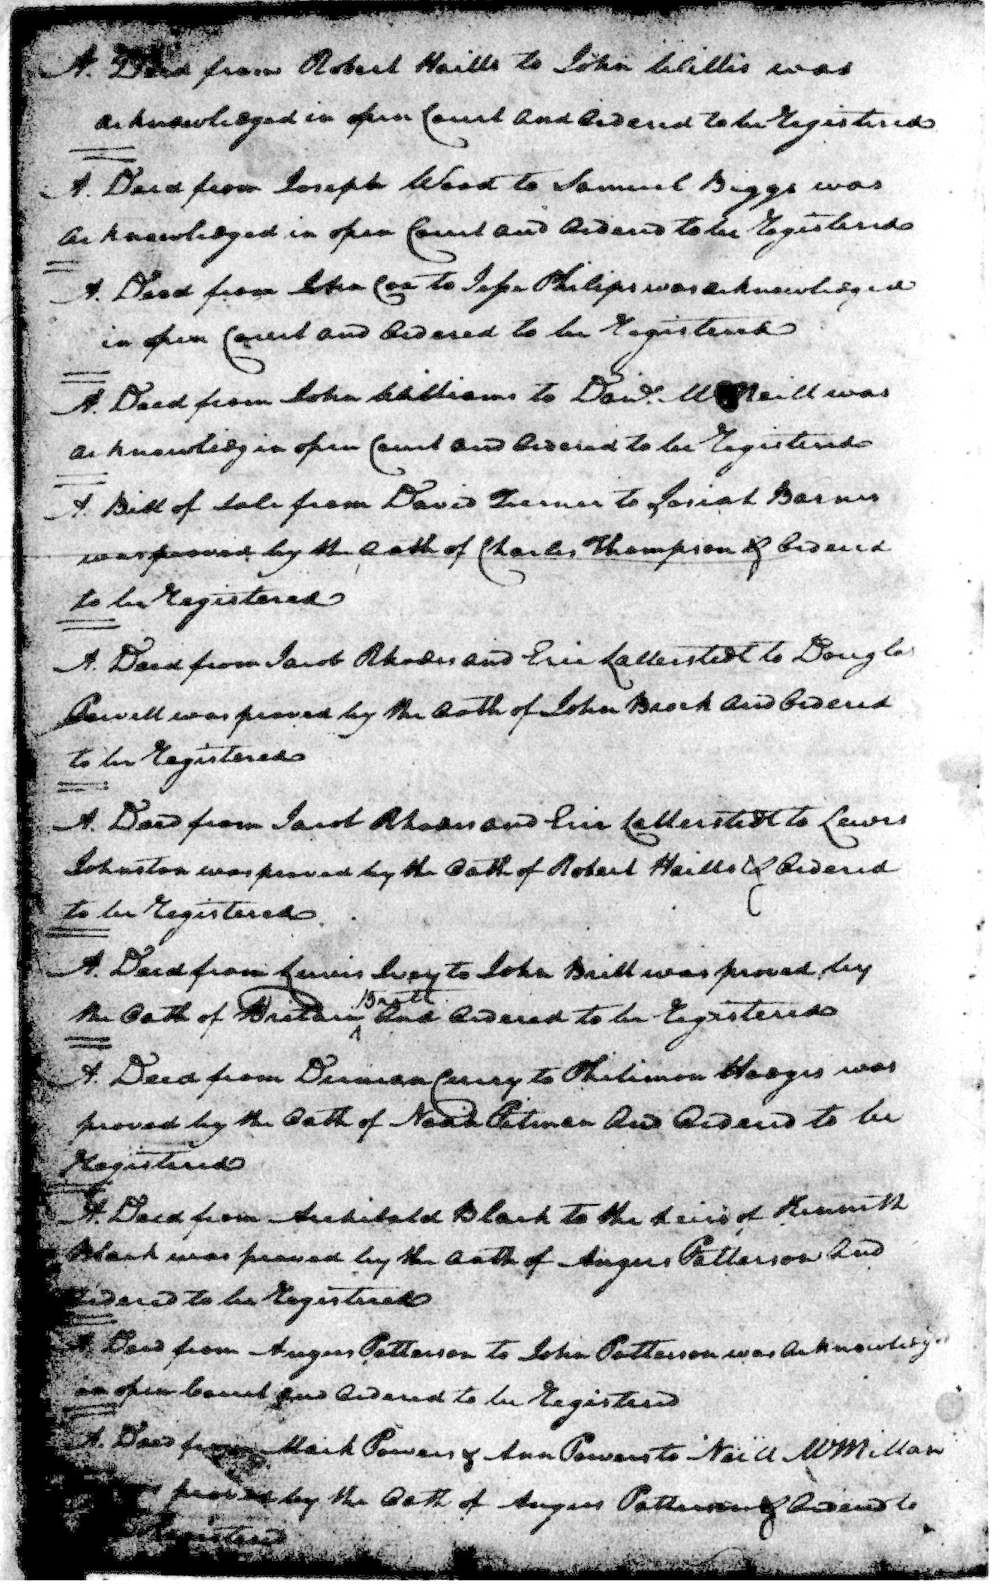 A. Deed from Robert Hails to John Willis was
acknowledged in open Court and Ordered to be Registered
A. Deed from Joseph Wood to Samuel Biggs was
acknowledged in open Court and Ordered to be Registered
A. Deed from John Coe to Jesse Philips was acknowledged
in open Court and Ordered to be Registered
A. Deed from John Williams to Danl. McNeill was
acknowledg in open Court and Ordered to be Registered
A Bill of Sale from David Turner to Josiah Barnes
was proved by the Oath of Charles Thompson & Ordered
to be Registered
A. Deed from Jacob Rhodes and Eric Latterstedt to Douglas
Powell was proved by the Oath of John Brock and Ordered
to be Registered
A. Deed from Jacob Rhodes and Eric Latterstedt to Lewis
Johnston was proved by the Oath of Robert Hails & Ordered
to be Registered
A. Deed from Lewis Ivey to John Britt was proved by
the Oath of Britain Britt and Ordered to be Registered
A. Deed from Duncan Curry to Philimon Hodges was
proved by the Oath of Noah Pitman and Ordered to be
Registered
A. Deed from Archibald Black to the heirs of Kenneth
Black was proved by the Oath of Angus Patterson and
Ordered to be Registered
A. Deed from Angus Patterson to John Patterson was acknowledged
in open Court and Ordered to be Registered
A. Deed from Mark Powers & Ann Powers to Neill McMillan
was proved by the Oath of Angus Patterson & Ordered to
Registered